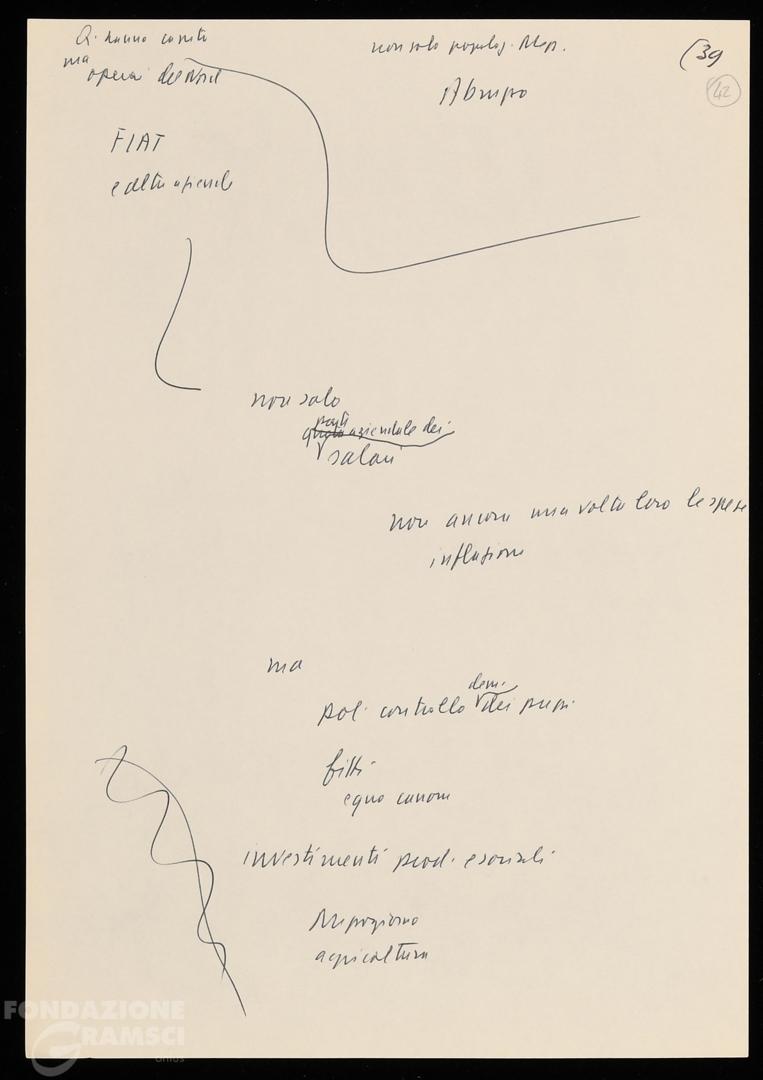 Q. hanno capito
ma
operai del Nord
non solo popolaz. Mez.
(39
42
Abruzzo
FIAT
e altre aziende
non solo
parti
quota aziendale dei
salari
non ancora una volta loro le spese
inflazione
ma
dem.
pol. controllo dei prezzi
fitti
equo canone
investimenti prod. e sociali
Mezzogiorno
agricoltura
FONDAZIONE
GRAMSCI
onlus